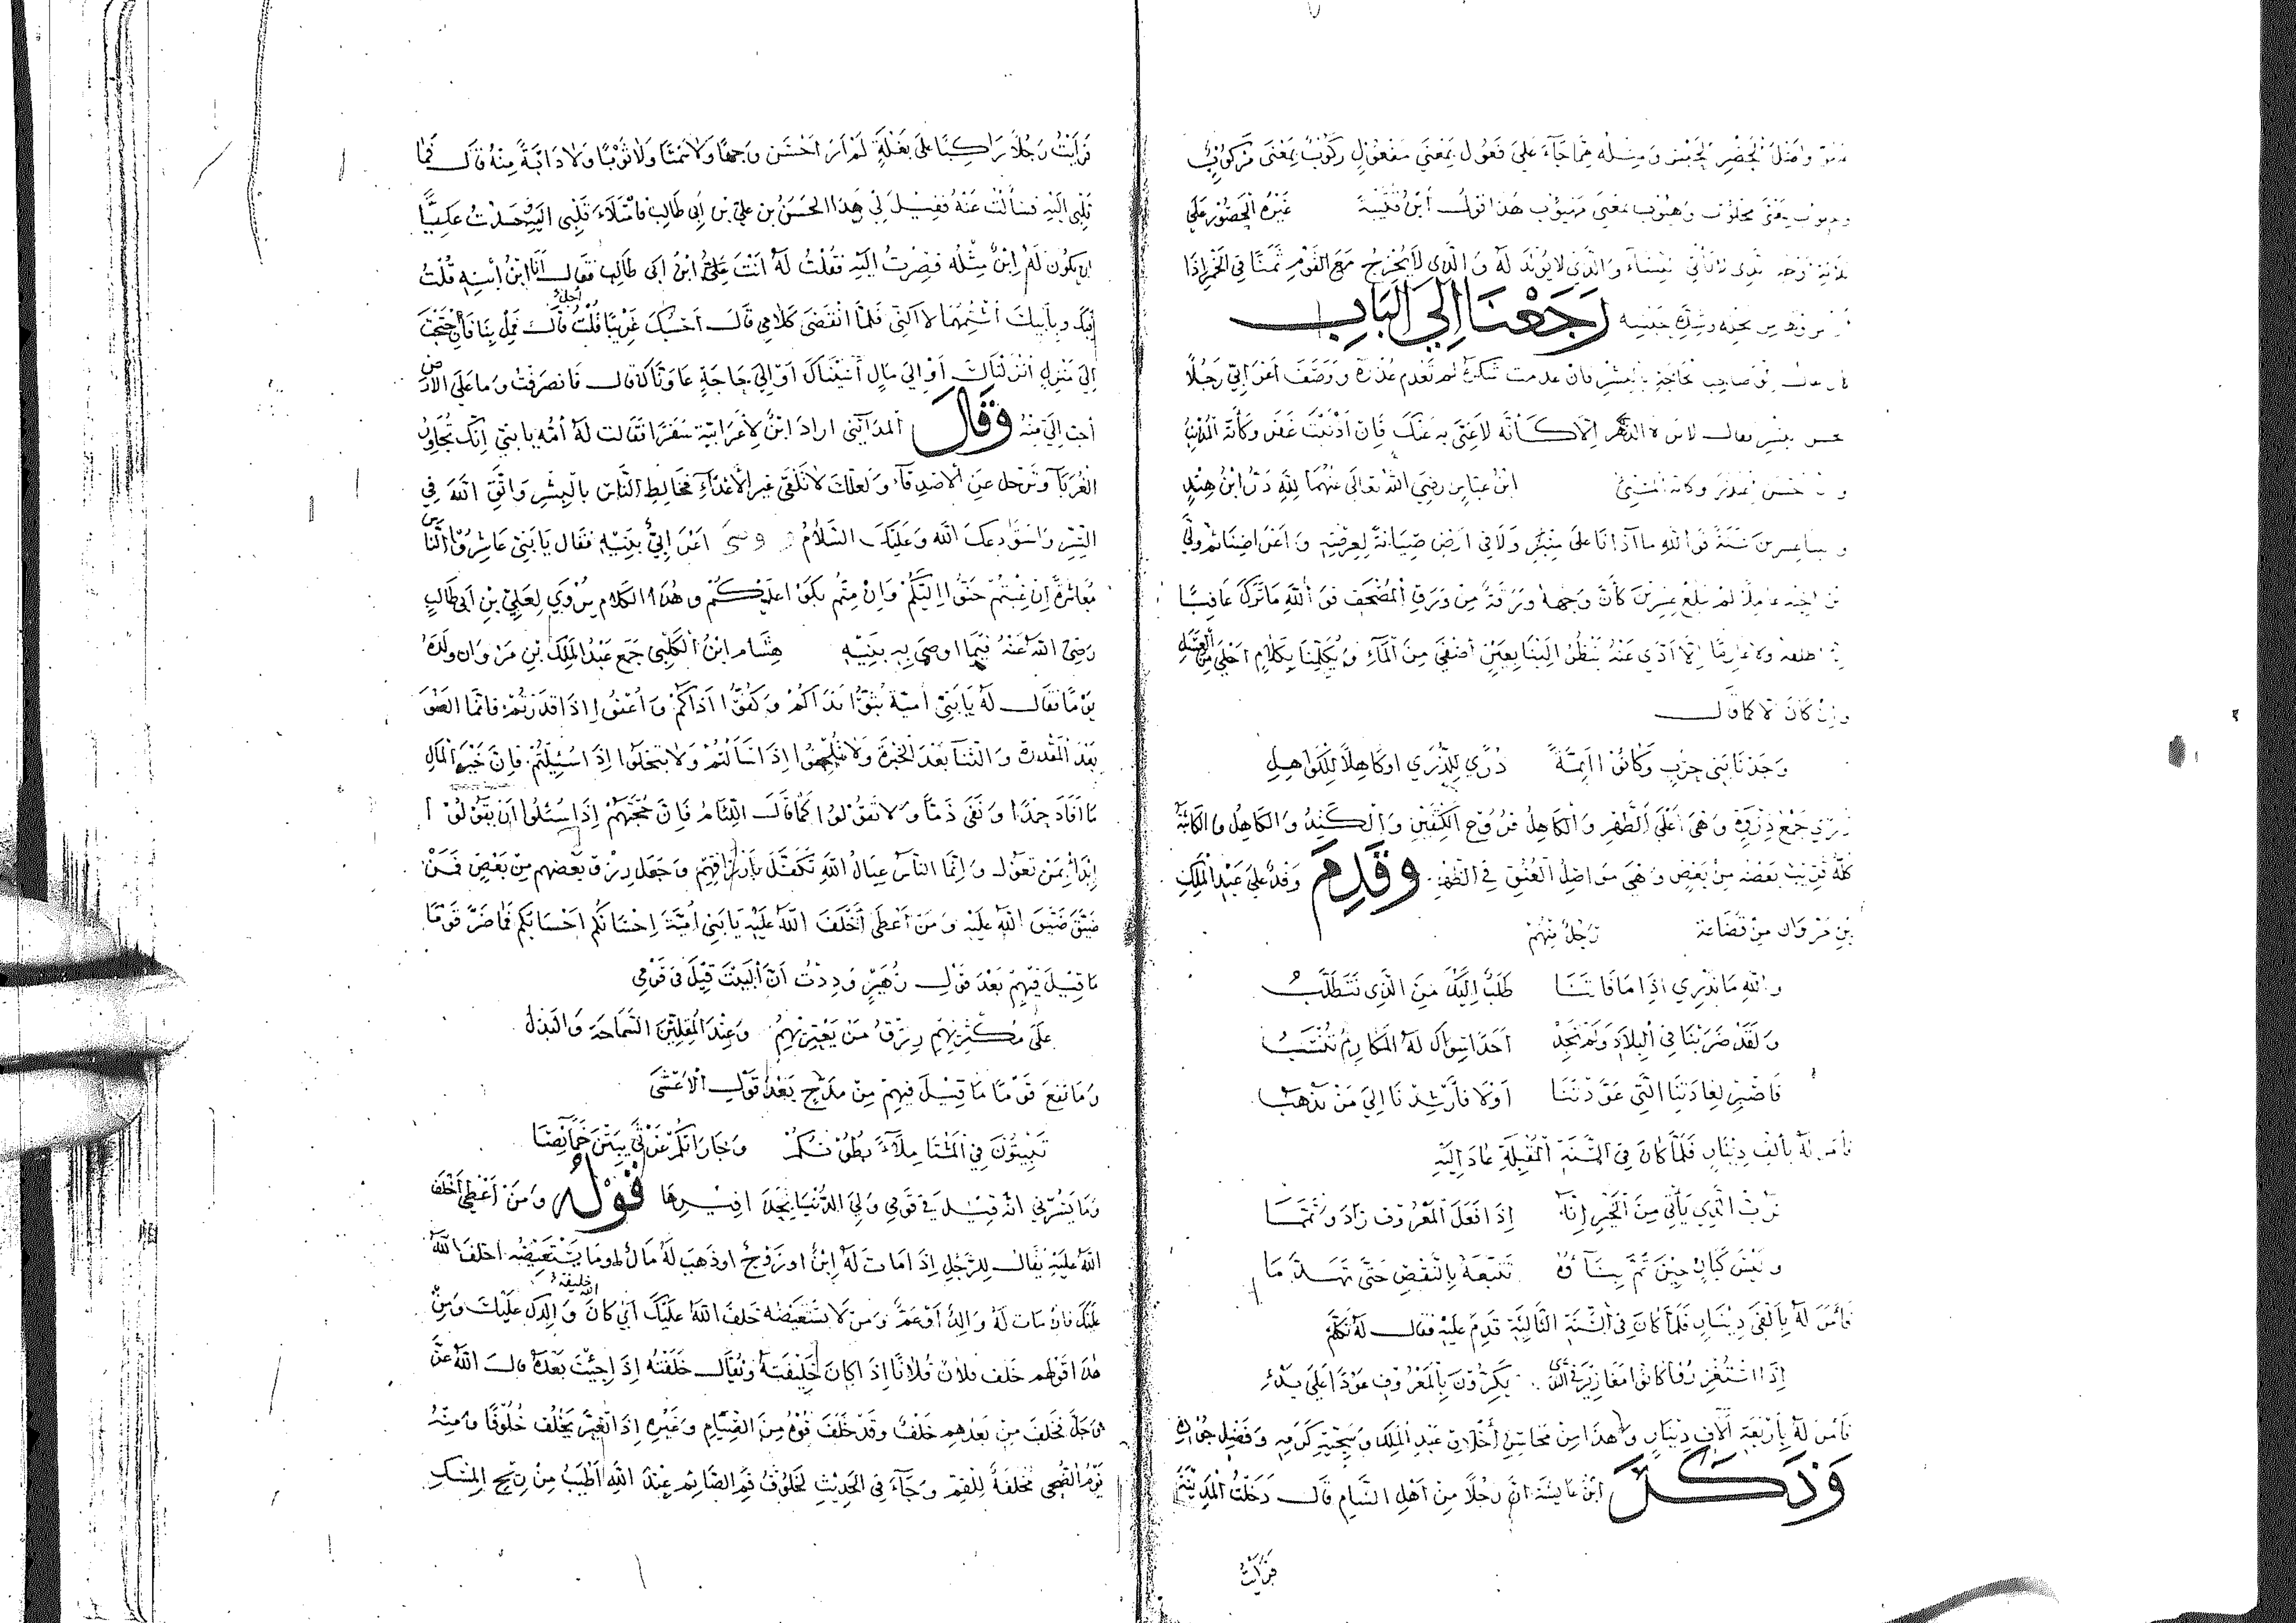 واصل الحصر الحبس ومثله مما جاء على فعول بمعنى مفعول ركوب بمعنى مركوب
وحلوب بمعنى محلوب وهيوب بمعنى مهيوب هذا قول ابن قتيبة غيره الحصور على
ثلاثة اوجه الذي لا يأتي النساء والذي لا يولد له والذي لا يخرج مع القوم ثمنا في الخمر اذا
من بخله وشدة حبسه رَجَعْنَا اِلَى الْبَابِ
صاحب بالبشر فان عدمت شكره لم تعدم عذره ووصف اعرابي رجلا
بحسن بشر فقال لا تراه الدهر الا كأنه لا غنى به عنك فان اذنبت غفر وكأنه المذنب
وكأنه المسيء ابن عباس رضي الله تعالى عنهما لله در ابن هند
عشرين سنة فوالله ما آذانا على منبر ولا في ارض صيانة لعرضه واعراضنا ثم ولي
ابن اخيه عاملا لم يبلغ عشرين كأن وجهه ورقة من ورق المصحف فوالله ما ترك عافيا
الا ادى عنه ينظر الينا بعين اصفى من الماء ويكلمنا بكلام احلى من العسل
وان كان لا كما قال
وجدنا بني حرب وكانوا ائمة ذرى للذرى او كاهلا للكواهل
ذرى جمع ذروة وهي اعلى الظهر والكاهل فروع الكتفين والكتد والكاهل والكاثبة
كله قريب بعضه من بعض وهي مواصل العنق في الظهر وَقَدِمَ وفد على عبد الملك
بن مروان من قضاعة رجل منهم
والله ما ندري اذا ما فاتنا طلب اليك من الذي نتطلب
ولقد ضربنا في البلاد ولم نجد احدا سواك له المكارم تنسب
فاصبر لعادتنا التي عودتنا اولا فارشدنا الى من نذهب
فأمر له بألف دينار فلما كان في السنة المقبلة عاد اليه
يرب الذي يأتي من الخير انه اذا فعل المعروف زاد وتمما
وليس كبان حين تم بناؤه تتبعه بالنقض حتى تهدما
فأمر له بألفي دينار فلما كان في السنة الثالثة قدم عليه فقال له تكلم
اذا استغزروا كانوا مغازير في الندى يكرون بالمعروف عودا على بدء
فأمر له بأربعة آلاف دينار وهذا من محاسن اخلاق عبد الملك وسجية كرمه وفضل جوده
وَذَكَرَ ابن عايشة ان رجلا من اهل الشام قال دخلت المدينة
فرأيت
فرأيت رجلا راكبا على بغلة لم ار احسن وجها ولا سمتا ولا ثوبا ولا دابة منه قال فمال
قلبي اليه فسألت عنه فقيل لي هذا الحسن بن علي بن ابي طالب فامتلأ قلبي اليه وحسدت عليا
ان يكون له ابن مثله فصرت اليه فقلت له انت علي ابن ابي طالب فقال انا ابن ابنه قلت
فبك وبأبيك اشتمهما لا اكني فلما انقضى كلامي قال احسبك غريبا قلت اجل قال فمل بنا فان احتجت
الى منزل انزلناك او الى مال آتيناك او الى حاجة عاوناك قال فانصرفت وما على الارض
احب الي منه وَقَالَ المدايني اراد ابن لاعرابية سفرا فقالت له امه يا بني انك تجاور
الغربآ وترحل عن الاصدقآء ولعلك لا تلقى غير الاعدآء فخالط الناس بالبشر واتق الله في
السر واستودعك الله وعليك السلام ووصى اعرابي بنيه فقال يا بني عاشروا الناس
معاشرة ان غبتم حنوا اليكم وان متم بكوا عليكم وهذا الكلام يروي لعلي بن ابي طالب
رضي الله عنه فيما اوصى به بنيه هشام ابن الكلبي جمع عبد الملك بن مروان ولده
يوما فقال له يا بني امية ثبوا نداكم وكفوا اذاكم واعفوا اذا قدرتم فانما العفو
بعد المقدرة والثنا بعد الخبرة ولا تلحفوا اذا سألتم ولا تبخلوا اذا سئلتم فان خير المال
ما افاد حمدا ونفى ذما ولا تقولوا كما قال اللئام فان حجتهم اذا سئلوا ان يقولوا
ابدأ بمن تعول وانما الناس عيال الله تكفل بأرزاقهم وجعل رزق بعضهم من بعض فمن
ضيق ضيق الله عليه ومن اعطى اخلف الله عليه يا بني امية احسانكم احسابكم فما ضر قوما
ما قيل فيهم بعد قول زهير وددت ان البيت قيل في قومي
على مكثريهم رزق من يعتريهم وعند المقلين السماحة والبذل
وما نفع قوما ما قيل فيهم من مدح بعد قول الاعشى
تبيتون في المشتا ملآء بطونكم وجاراتكم غرثى يبتن خمآئصا
وما يسرني انه قيل في قومي ولي الدنيا بحذافيرها قَوْلُهُ ومن اعطى اخلف
الله عليه يقال للرجل اذا مات له ابن او زوج او ذهب له مال او ما يستعيضه اخلف الله
عليك فان مات له والد او عم ومن لا يستعيضه خلف الله عليك اي كان الله خليفة والدك عليك ومن
هذا قولهم خلف فلان فلانا اذا كان خليفته ويقال خلفته اذا جئت بعده قال الله عز
وجل فخلف من بعدهم خلف وقد خلف فوه من الصيام وغيره اذا تغير يخلف خلوفا ومنه
نوم الضحى مخلفة للفم وجآء في الحديث لخلوف فم الصائم عند الله اطيب من ريح المسك